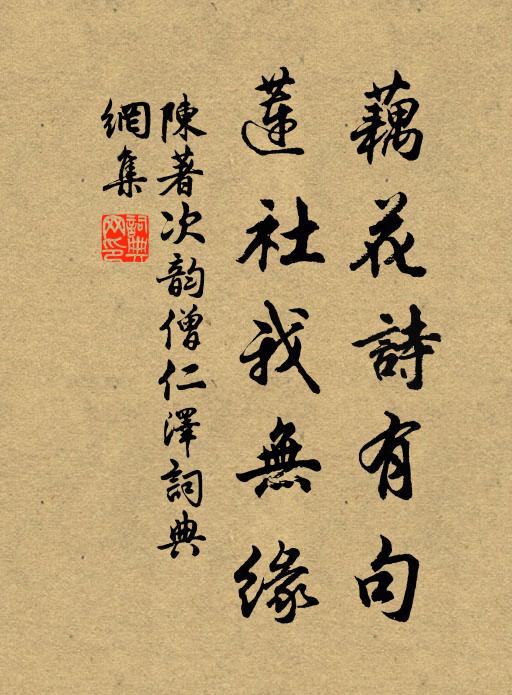 藕花詩有句
蓮社我無緣
陳著次韵僧仁澤詞典
網集
詞典
网印